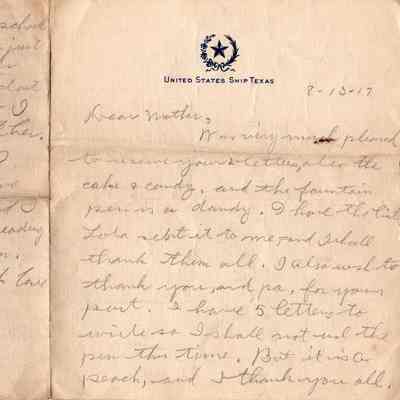 school
just
out
I
ther.
I
eading
n.
h love
UNITED STATES SHIP TEXAS
8-13-17
Dear Mother,
Was very much pleased
to receive your 2 letters, also the
cake & candy, and the fountain
pen is a dandy. I have the list
Lola sent it to me and I shall
thank them all. I also wish to
thank you, and, pa, for your
part. I have 5 letters to
write so I shall not use the
pen this time. But it is a
peach, and I thank you all.